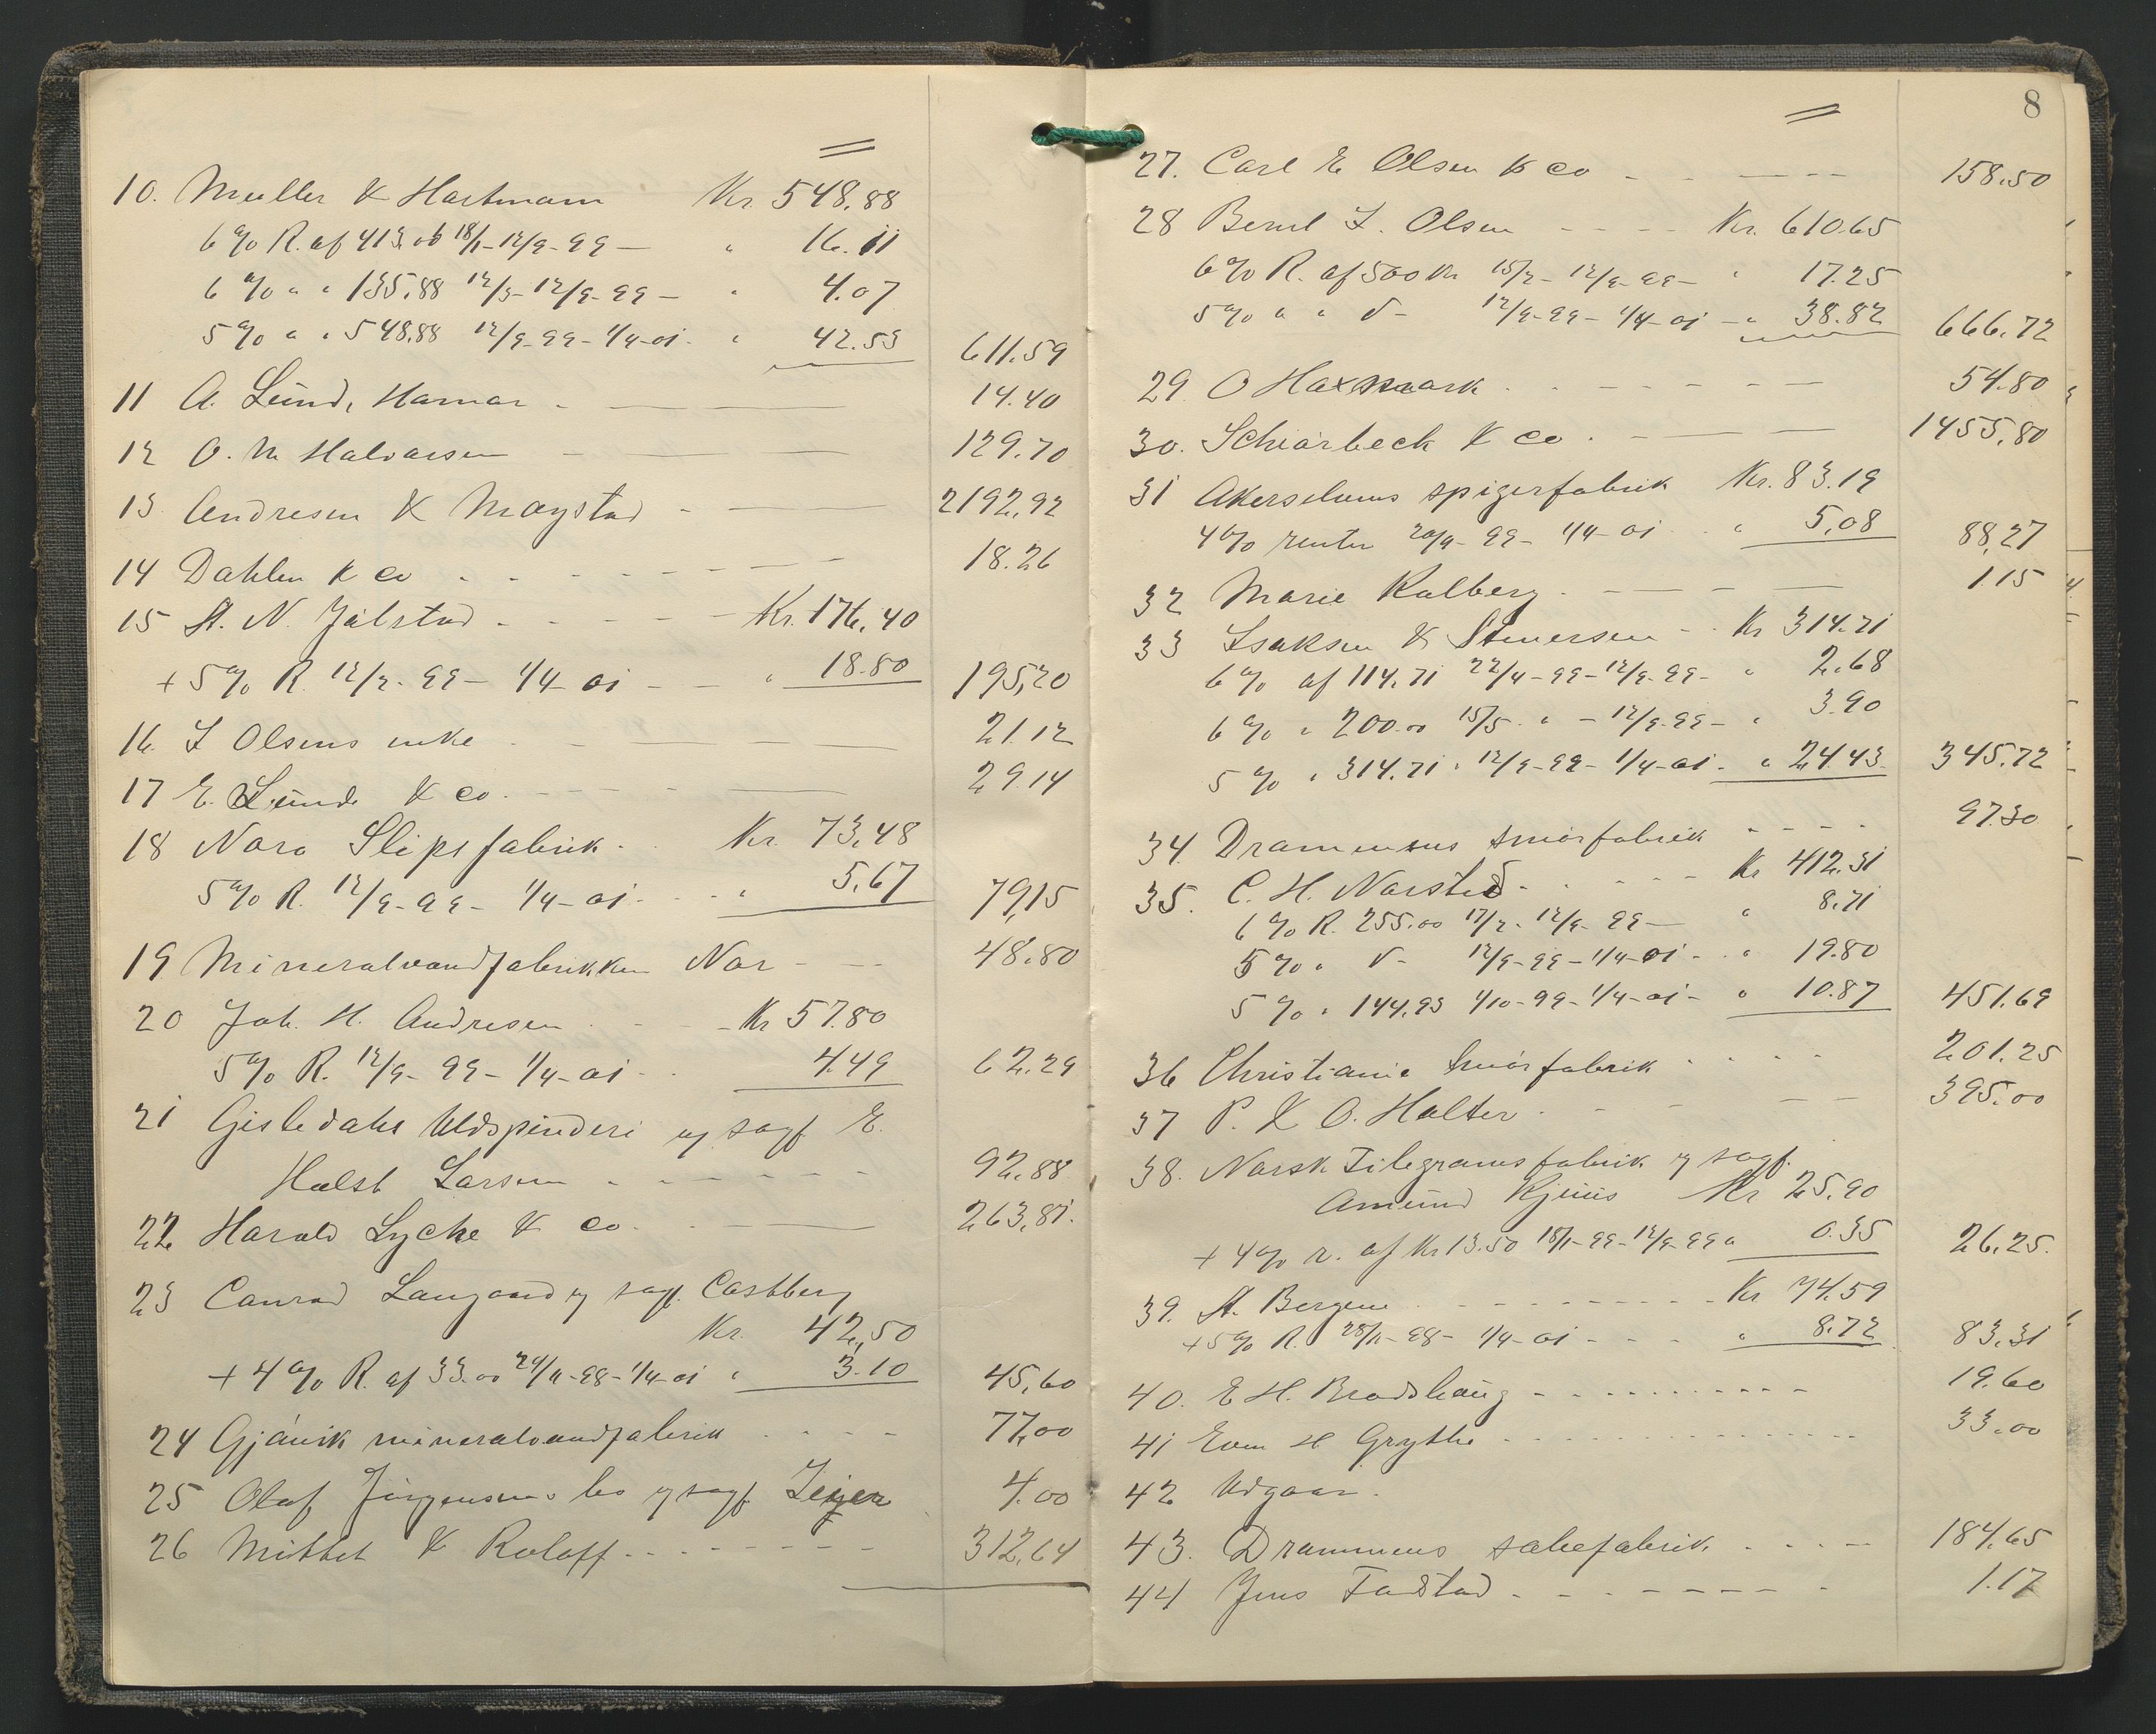 =
10. Muller & Hartmann Kr. 548.88
6% R. af 413.00 18/1-12/9-99 — " 16.11
6% " " 135.88 12/3-12/9-99 — " 4.07
5% " " 548.88 12/9-99-1/4-01. " 42.53 611.59
11 A. Lund, Hamar - — 14.40
12 O. M. Halvorsen — 129.70
13 Andresen & Møystad - — 2192,92
14 Dahlen & Co - - - - 18.26
15 A. N. Jølstad - - - - Kr. 176,40
+ 5% R. 12/2-99 - 1/4-01 - - " 18.80 195,20
16. I Olsens enke - — 21.12
17 E. Lunde & Co. - - - 29.14
18 Nora Slipsfabrik. Kr. 73,48
5% R. 12/9-99 - 1/4-01. - " 5,67 79,15
19 Mineralvandfabrikken Nor - - 48.80
20 Joh. H. Andresen - - Kr 57.80
5% R. 12/9-99 - 1/4-01 - 4.49 62.29
21 Gisledahls Uldspinderi v sagf. E.
Holst Larsen - - - - - 92,88
22 Harald Lycke & Co. - — 263,81.
23 Conrad Langaard v sagf. Castberg
Kr. 42,50
+ 4% R. af 33.00 24/11-98-1/4-01 " 3.10 45,60
24 Gjøvik mineralvandfabrik - - - - 77,00
25 Olaf Jørgensens bo v sagf. 4.00
26 Mittet & Roloff - - - - - - - 312,64
= 8
27. Carl E Olsen & Co - - — - - 158.50
28 Bernt I. Olsen - - - - Kr. 610.65
6% R. af 500 Kr 15/2-12/9-99 - " 17.25
5% " " d- 12/9-99-1/4-01 - " 38.82 666.72
29. O Haxmark - - - - - - — 54.80
30. Schiørbeck & Co. - — 1455,80
31 Akerselvens spigerfabrik Kr. 83.19
4% renter 20/9-99-1/4-01 " 5,08 88,27
32 Marie Kolberg. - — - — 1.15
33 Isaksen & Stenersen - Kr 314.71
6% af 114.71 22/4-99-12/9-99- " 2.68
6% " 200.00 15/5 " - 12/9-99- " 3.90
5% " 314.71 " 12/9-99-1/4-01- " 24.43. 345.72
34. Drammens smørfabrik - - - - 97.30
35. C. H. Norsted. - - - - - Kr 412.31
6% R. 255.00 17/2-12/9-99 — " 8.71
5% " d- 12/9-99-1/4-01 - " 19.80
5% " 144.93 1/10-99-1/4-01 - " 10.87 451.69
36 Christiania smørfabrik - - - - 201.25
37 P. & O. Holter - - - — 395.00
38. Norsk Telegramsfabrik v sagf.
Amund Kjuus Kr 25.90
+ 4% r. af Kr 13.50 18/1-99-12/9-99 " 0.35 26,25.
39. A. Bergene - - - - - - - Kr 74.59
+ 5% R. 28/11-98- 1/4-01 - - - " 8.72 83,31
40. E H. Brodshaug - - - - - - - - - 19.60
41 Even H Grythe - - - - - - - - - - 33.00
42 Udgaar.
43. Drammens sæbefabrik - - - - 184.65
44 Jens Fodstad - - - - - - - 1.17